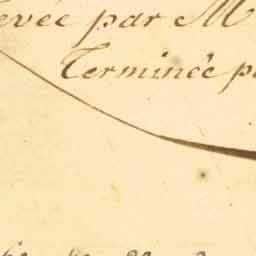 evée par M
Terminée p